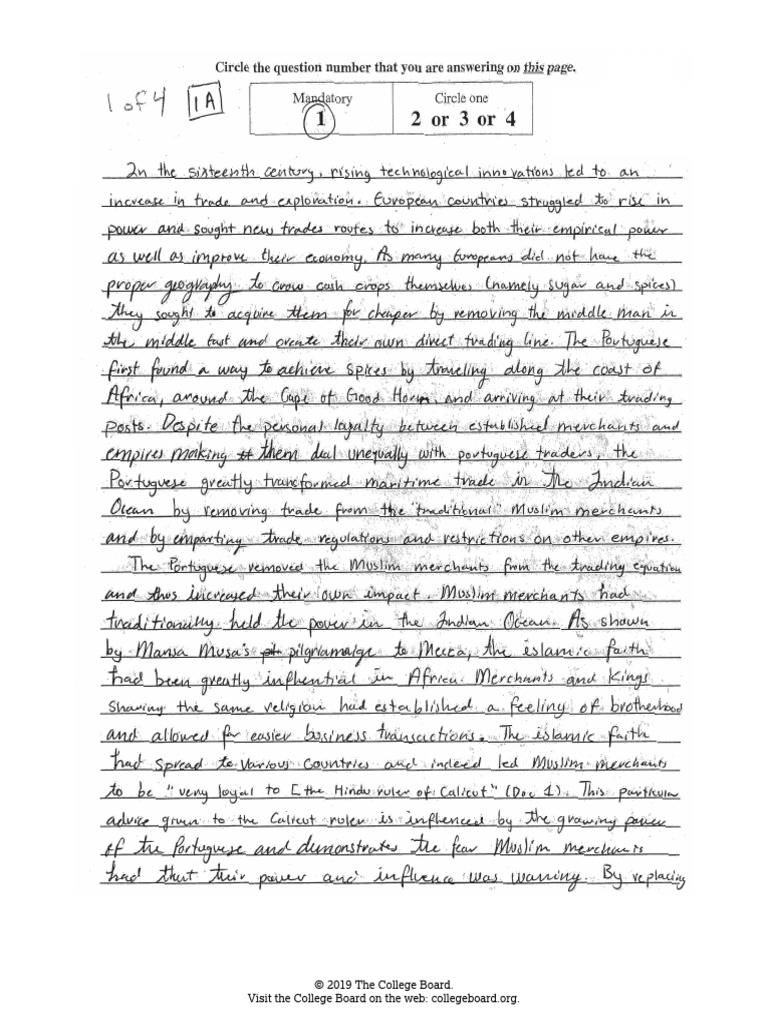 Circle the question number that you are answering on this page.
1 of 4 1A
Mandatory Circle one
1 2 or 3 or 4
In the sixteenth century, rising technological innovations led to an
increase in trade and exploration. European countries struggled to rise in
power and sought new trades routes to increase both their empirical power
as well as improve their economy. As many Europeans did not have the
proper geography to grow cash crops themselves (namely sugar and spices)
they sought to acquire them for cheaper by removing the middle man in
the middle East and create their own direct trading line. The Portuguese
first found a way to achieve spices by traveling along the coast of
Africa, around the Cape of Good Horn, and arriving at their trading
posts. Despite the personal loyalty between established merchants and
empires making them deal unequally with portuguese traders, the
Portuguese greatly transformed maritime trade in the Indian
Ocean by removing trade from the "traditional" Muslim merchants
and by emparting trade regulations and restrictions on other empires.
The Portuguese removed the Muslim merchants from the trading equation
and thus increased their own impact. Muslim merchants had
traditionally held the power in the Indian Ocean. As shown
by Mansa Musa's pilgriamaige to Mecca, the islamic faith
had been greatly influential in Africa. Merchants and Kings
sharing the same religion had established a feeling of brotherhood
and allowed for easier business transactions. The islamic faith
had spread to various countries and indeed led Muslim merchants
to be "very loyal to [the Hindu ruler of Calicut" (Doc 1). This particular
advice given to the Calicut ruler is influenced by the growing power
of the Portuguese and demonstrates the fear Muslim merchants
had that their power and influence was wanning. By replacing
© 2019 The College Board.
Visit the College Board on the web: collegeboard.org.